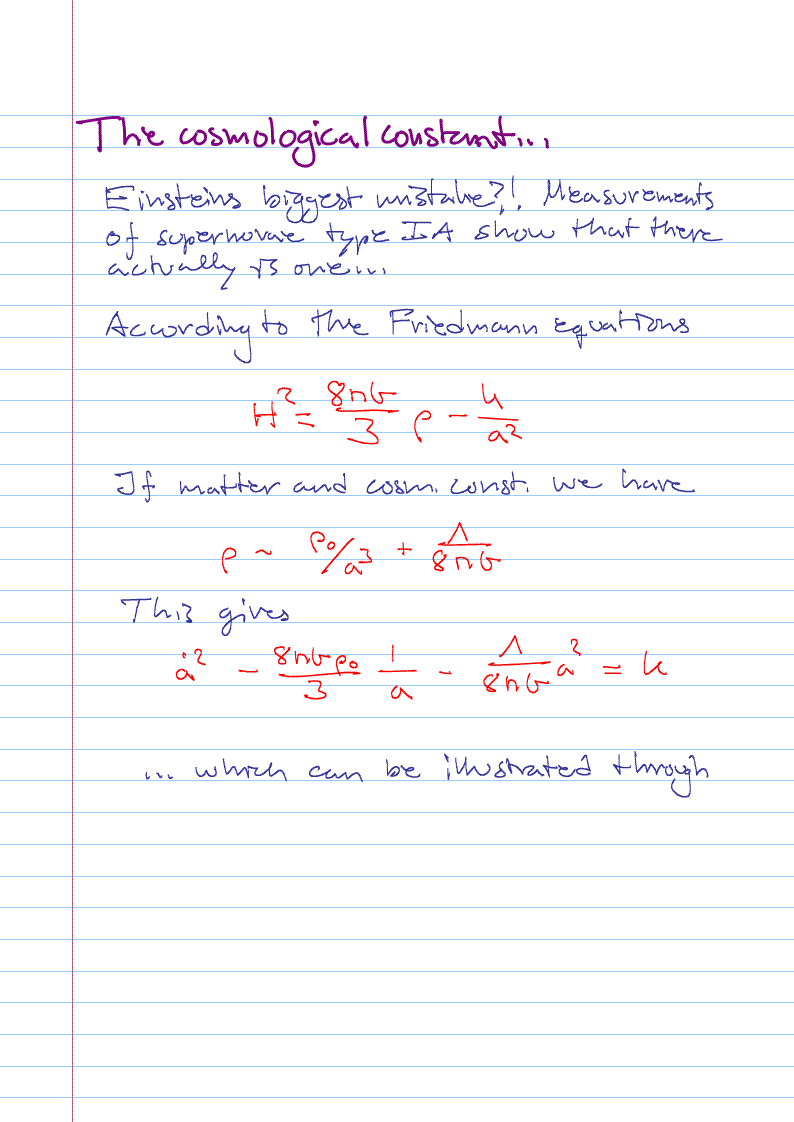 The cosmological constant...
Einsteins biggest mistake?!. Measurements
of supernovae type IA show that there
actually is one...
According to the Friedmann equations
H² = 8πG/3 ρ - k/a²
If matter and cosm. const. we have
ρ ~ ρ₀/a³ + Λ/8πG
This gives
ȧ² - 8πGρ₀/3 1/a - Λ/8πG a² = k
... which can be illustrated through